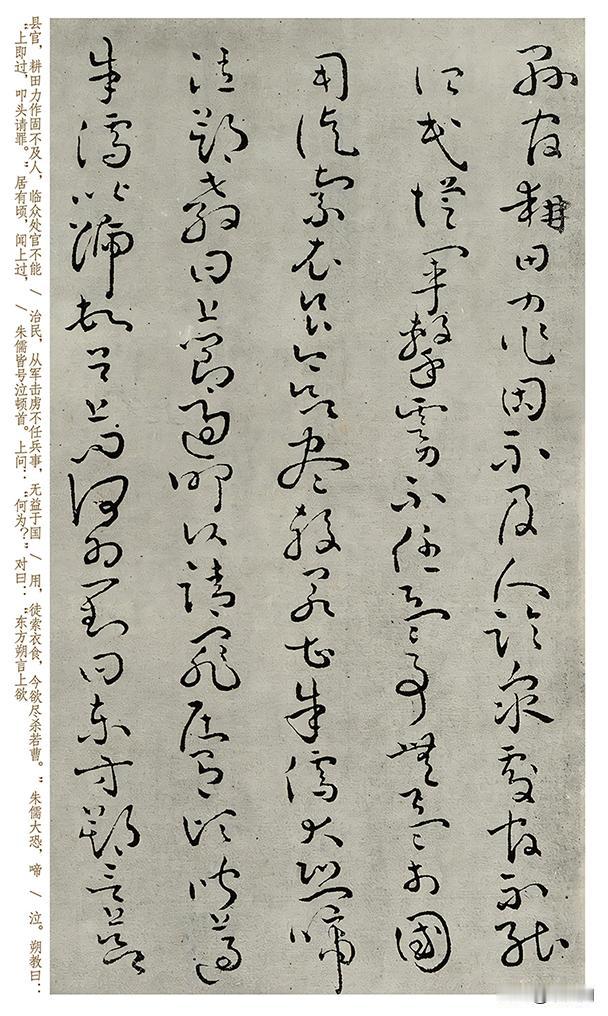 縣官耕田力作固不及人臨衆處官不能
治民從軍擊虜不任兵事無益於國
用徒索衣食今欲盡殺若曹朱儒大恐啼
泣朔教曰上即過叩頭請罪居有頃聞上過
朱儒皆號泣頓首上問何為對曰東方朔言上欲
县官，耕田力作固不及人，临众处官不能 / 治民，从军击虏不任兵事，无益于国 / 用，徒索衣食，今欲尽杀若曹。” 朱儒大恐，啼 / 泣。朔教曰：
“上即过，叩头请罪。” 居有顷，闻上过， / 朱儒皆号泣顿首。上问：“何为？” 对曰：“东方朔言上欲